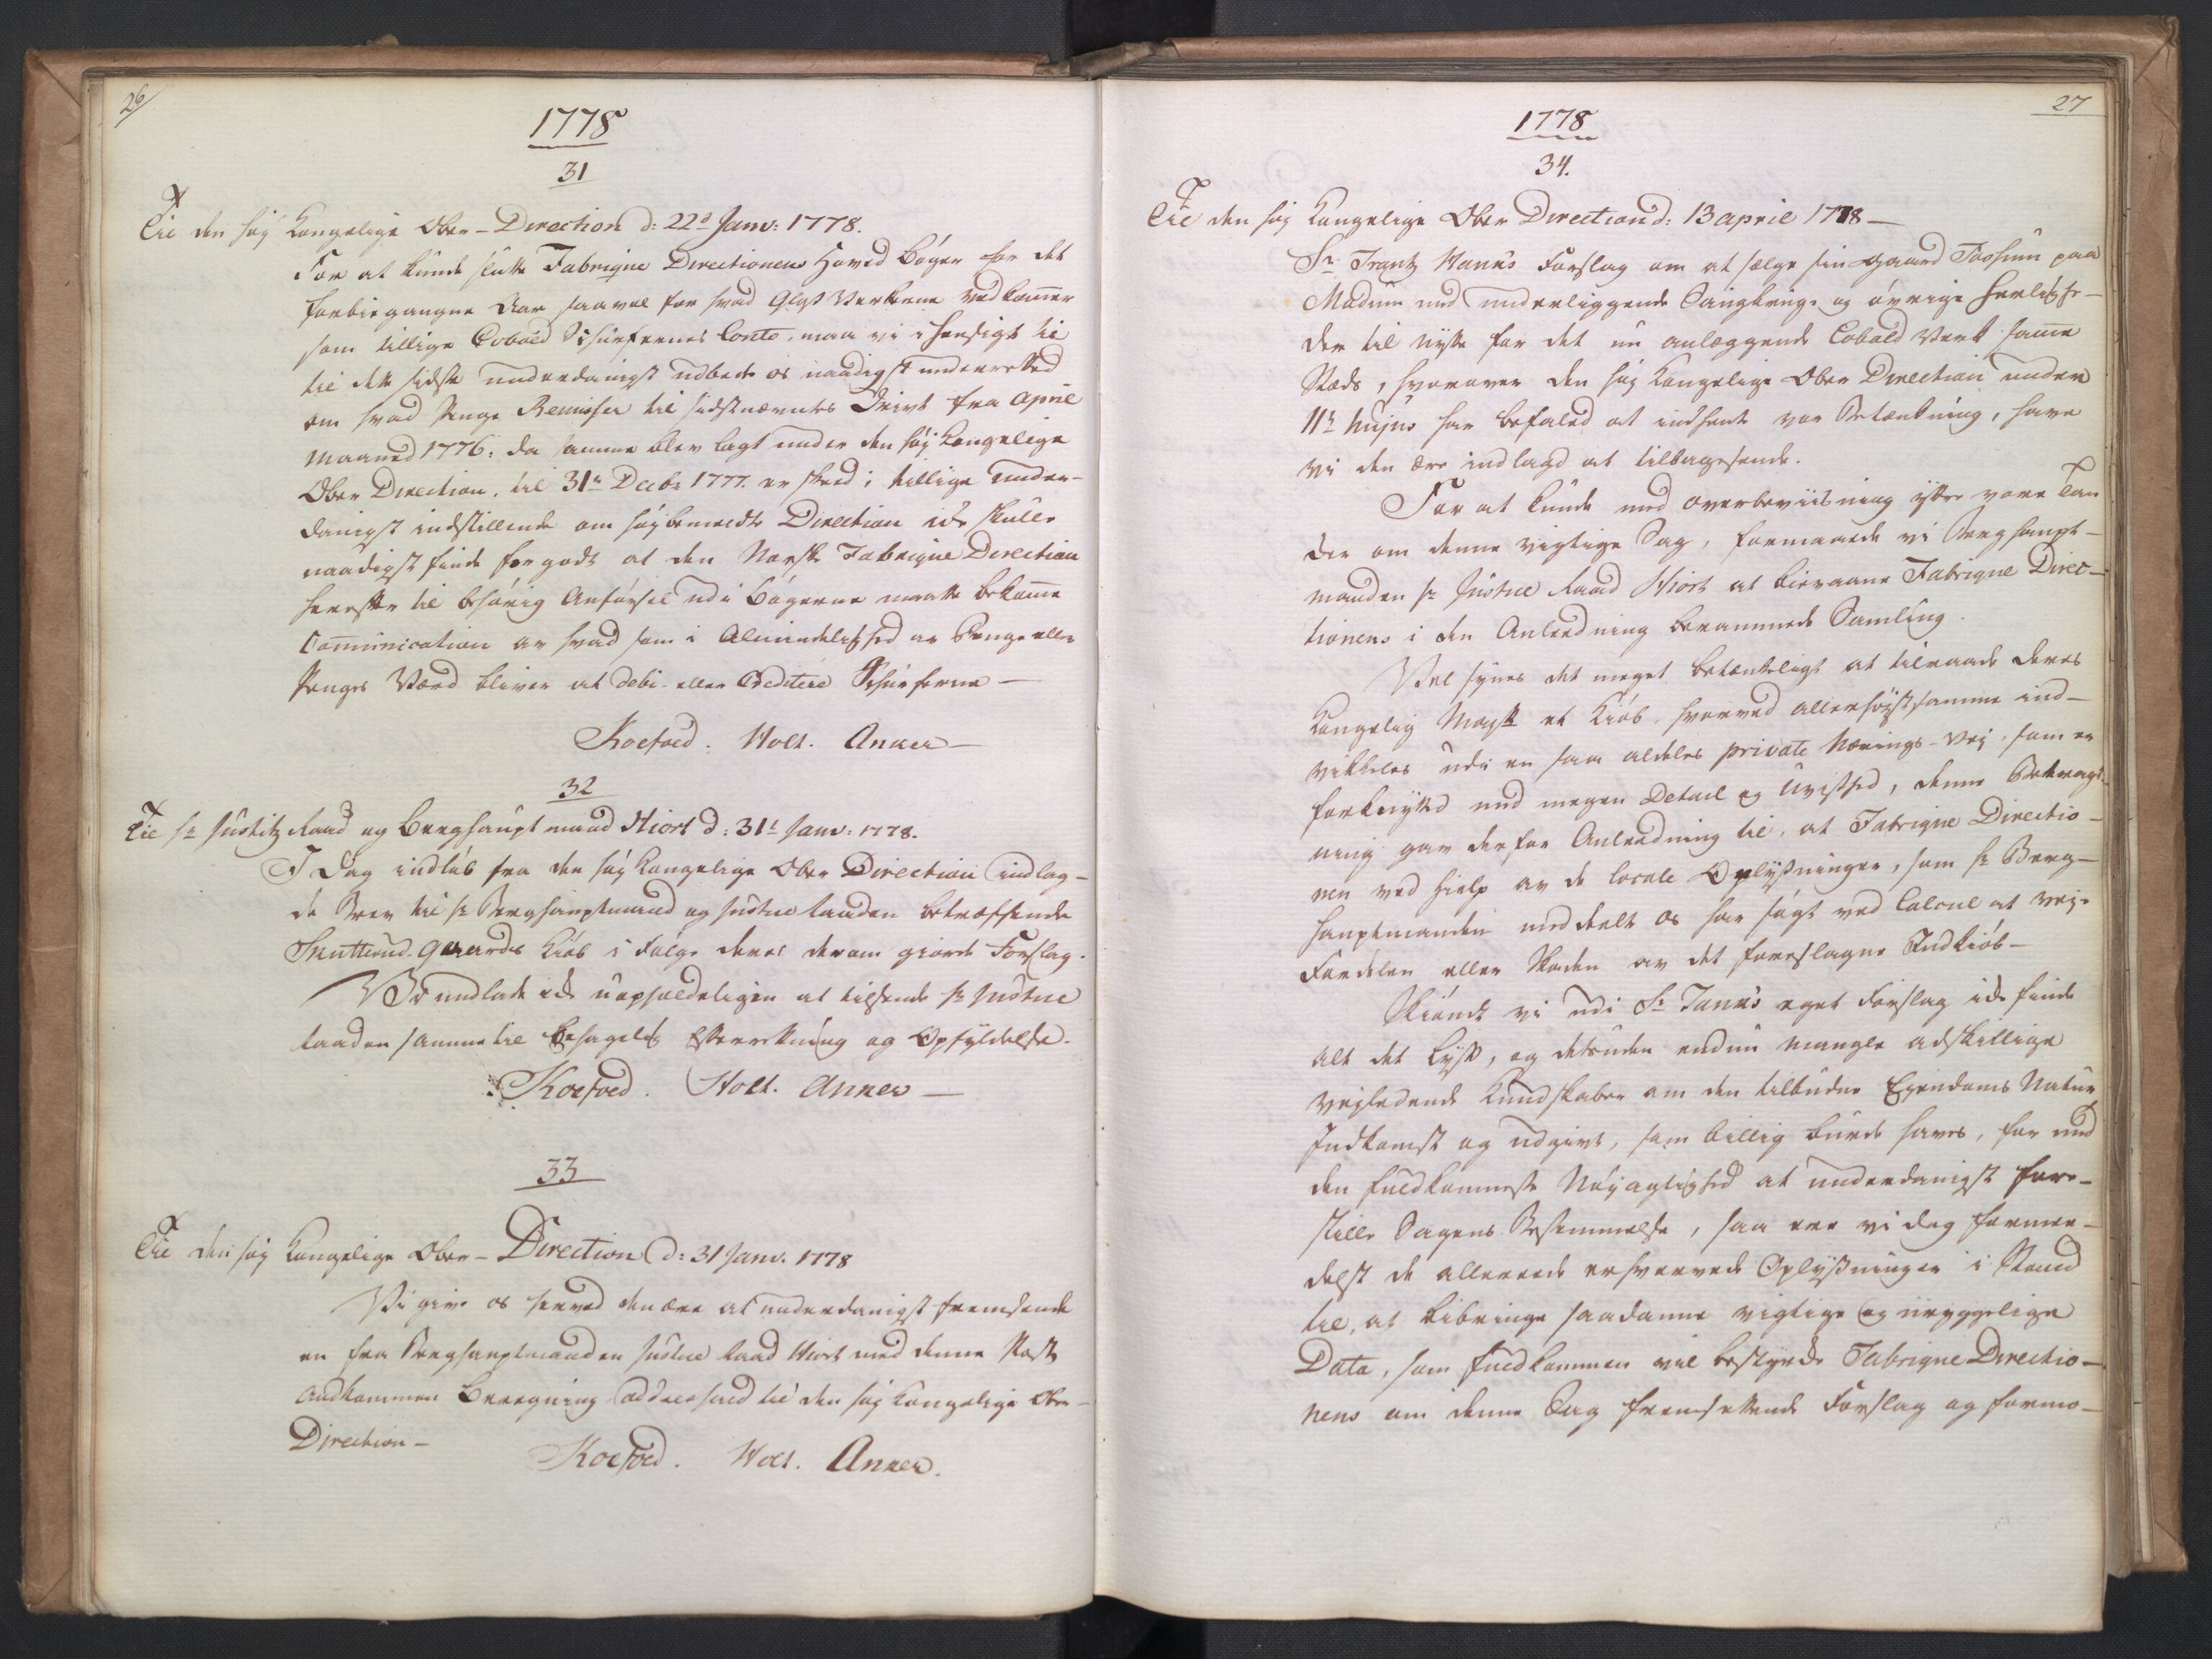 26
1778
31
Til den høj Kongelige Ober-Direction d: 22d Janv: 1778.
For at kunde slutte Fabrique Directionens Hoved Bøger for det
forbigangne Aar saavel for hvad Glas Verkerne vedkom̅er
som tillige Cobold Schürfernes Conto, maa vi i henseigt til
til dette sidste underdanigst udbede os naadigst underrettet
om hvad Penge Remisser til sidstnævntes Drivt fra April
Maaned 1776: da samme blev lagt under den høj Kongelige
Ober Direction, til 31te Decbr 1777. er skeed; tillige under-
danigst indstillende om højbemeldte Direction ikke skulle
naadigst finde for godt at den Norske Fabrique Direction
herefter til behørig Anførsel udi Bøgerne maatte bekom̅e
Com̅unication av hvad som i Almindelighed av Penge eller
Penges Værd bliver at debi- eller Creditere Schürferne —
Koefoed. Holt. Anker —
32
Til Hr Justitz Raad og Berghauptmand Hiort d: 31t Janv: 1778.
I Dag indløb fra den høj Kongelige Ober Direction indlag-
de Brev til Hr Berghauptmand og Justice Raaden betræffende
Snuttrud Gaards Kiøb i Følge deres derom giorte Forslag.
Vi undlade ikke uopholdeligen at tilsende Hr Justice
Raaden samme til behagelig Efterretning og Opfyldelse.
Koefoed. Holt. Anker —
33
Til den høj Kongelige Ober-Direction d: 31 Janv. 1778
Vi give os herved den ære at underdanigst fremsende
en fra Berghauptmanden Justice Raad Hiort med denne Post
Ankommen Beregning adresserd til den høj Kongelige Ober-
Direction —
Koefoed. Holt. Anker.
27
1778
34.
Til den høj Kongelige Ober Direction d: 13 april 1778 —
Sr. Frantz Tanks Forslag om at sælge sin Gaard Fossum paa
Modum med underliggende Saugbrug og øvrige herlighe-
der til nytte for det nu anlæggende Cobold Verk samme
Stæds, hvorover den høj Kongelige Ober Direction under
11te hujus har befaled at indhente vor Betænkning, have
vi den ære indlagd at tilbagesende.
For at kunde med overbeviisning yttre vore Tan
ker om denne vigtige Sag, formaaede vi Berghaupt-
manden Hr Justice Raad Hiort at bievaane Fabrique Direc-
tionens i den Anledning berammede Samling.
Vel synes det meget betænkeligt at tilraade deres
Kongelig Mayst et Kiøb, hvorved allerhøjstsamme ind-
vikkles udi en saa aldeles private Nærings-Vej, som er
forknyttet med megen Detail og Uvished, denne Betragt-
ning gav derfor Anledning til, at Fabrique Directio-
nen ved hielp av de locale Oplysninger, som Hr Berg-
hauptmanden meddeelte os har søgt ved Calcul at veje
Fordelen eller Skaden av det foreslagne Indkiøb —
Skiøndt vi udi Sr. Tanks eget Forslag ikke finde
alt det Lyst, og desuden endnu mangle adskillige
vejledende Kundskaber om den tilbudne Ejendoms Natur
Indkomst og udgivt, som billig burde haves, for med
den fuldkomneste Nøjagtighed at underdanigst fore-
stille Sagens Bestemmelse, saa ere vi dog formee-
delst de allereede erhvervede Oplysninger i Stand
til, at bibringe saadanne vigtige og uryggelige
Data, som fuldkommen vil bestyrke Fabrique Directio-
nens om denne Sag fremsættende Forslag og formo-